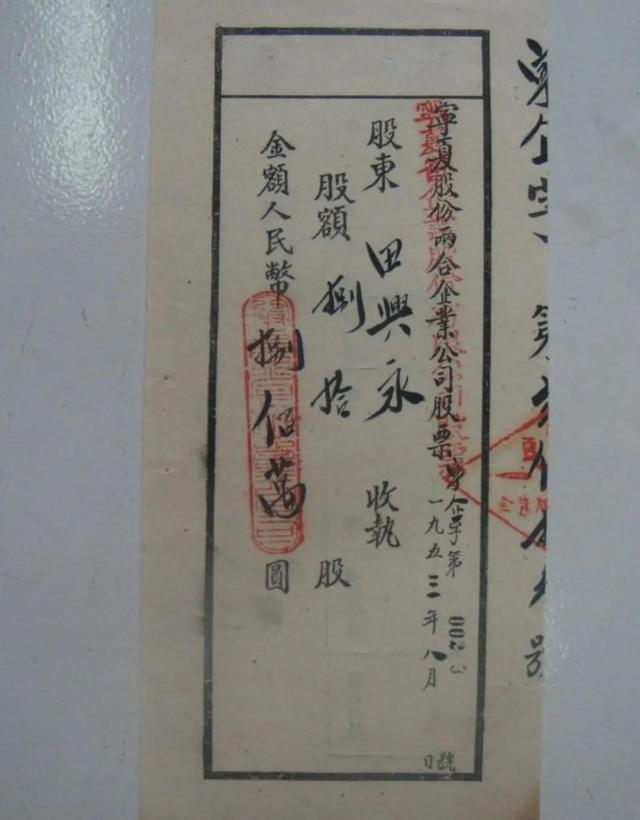 企字 第 號
寧夏股份兩合企業公司股票 寧企字第 002 3 號
一九五三年八月 日
股東 田興永 收執
股額 捌拾 股
金額人民幣 捌佰萬 圓